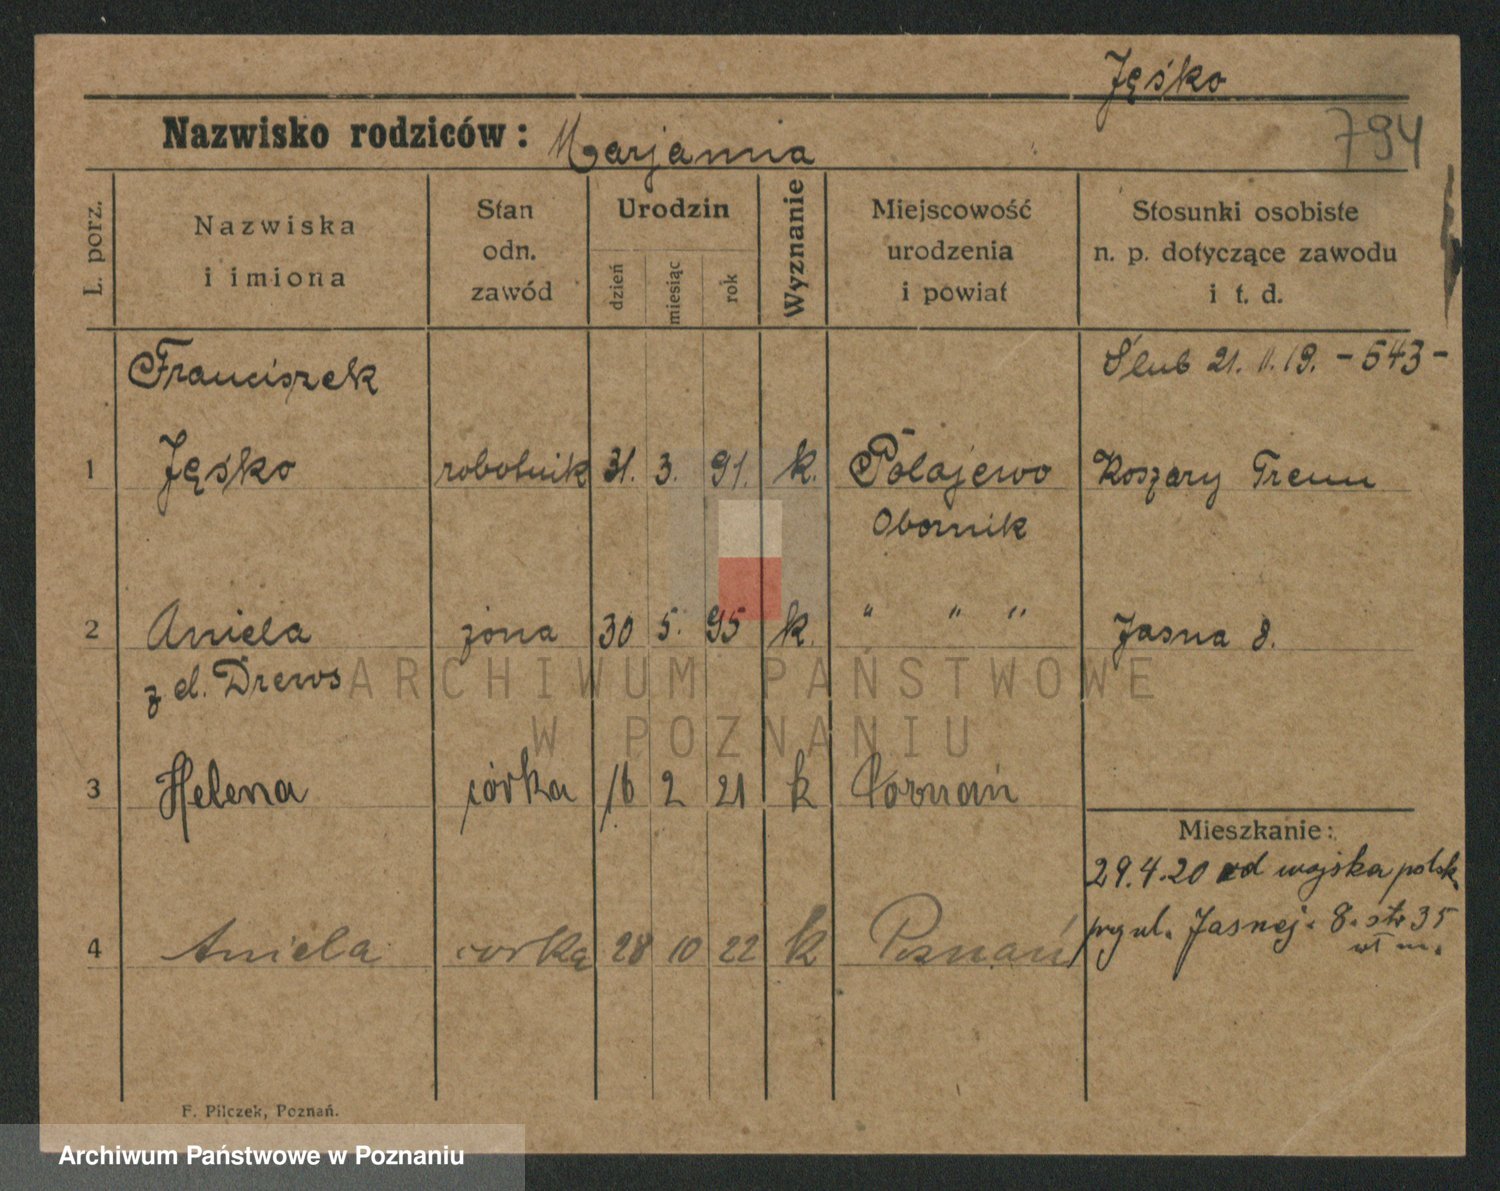 Jęśko
794
Nazwisko rodziców: Marjanna
L. porz.
Nazwiska
i imiona
Stan
odn.
zawód
Urodzin
dzień
miesiąc
rok
Wyznanie
Miejscowość
urodzenia
i powiat
Stosunki osobiste
n. p. dotyczące zawodu
i t. d.
Franciszek
Ślub 21. 11. 19. - 543 -
1 Jęśko robotnik 31. 3. 91. k. Połajewo Koszary Trenu
Obornik
2 Aniela żona 30 5. 95 k. " " " Jasna 8.
z d. Drews
ARCHIWUM PAŃSTWOWE
W POZNANIU
3 Helena córka 16 2 21 k Poznań
Mieszkanie:
29.4.20 od wojska polsk.
przy ul. Jasnej. 8. str 35
4 Aniela corka 28 10 22 k Poznań
F. Pilczek, Poznań.
Archiwum Państwowe w Poznaniu